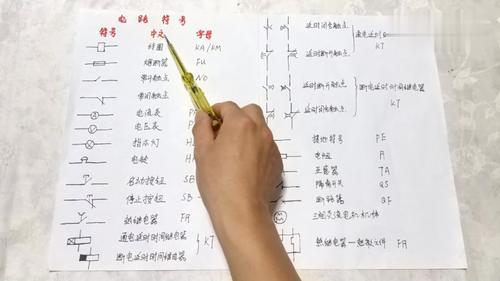 电路符号
符号 中文 字母
线圈 KA/KM
熔断器 FU
常开触点 NO
常闭触点
电流表
电压表
指示灯
电铃
启动按钮 SB
停止按钮 SB
热继电器 FR
通电延时时间继电器
断电延时时间继电器
KT
延时闭合触点
延时断开触点
通电延时
KT
延时断开触点
延时闭合触点
断电延时时间继电器
KT
接地符号 PE
电阻 R
互感器 TA
隔离开关 QS
断路器 QF
三相交流电机机体
热继电器—热敏元件 FR